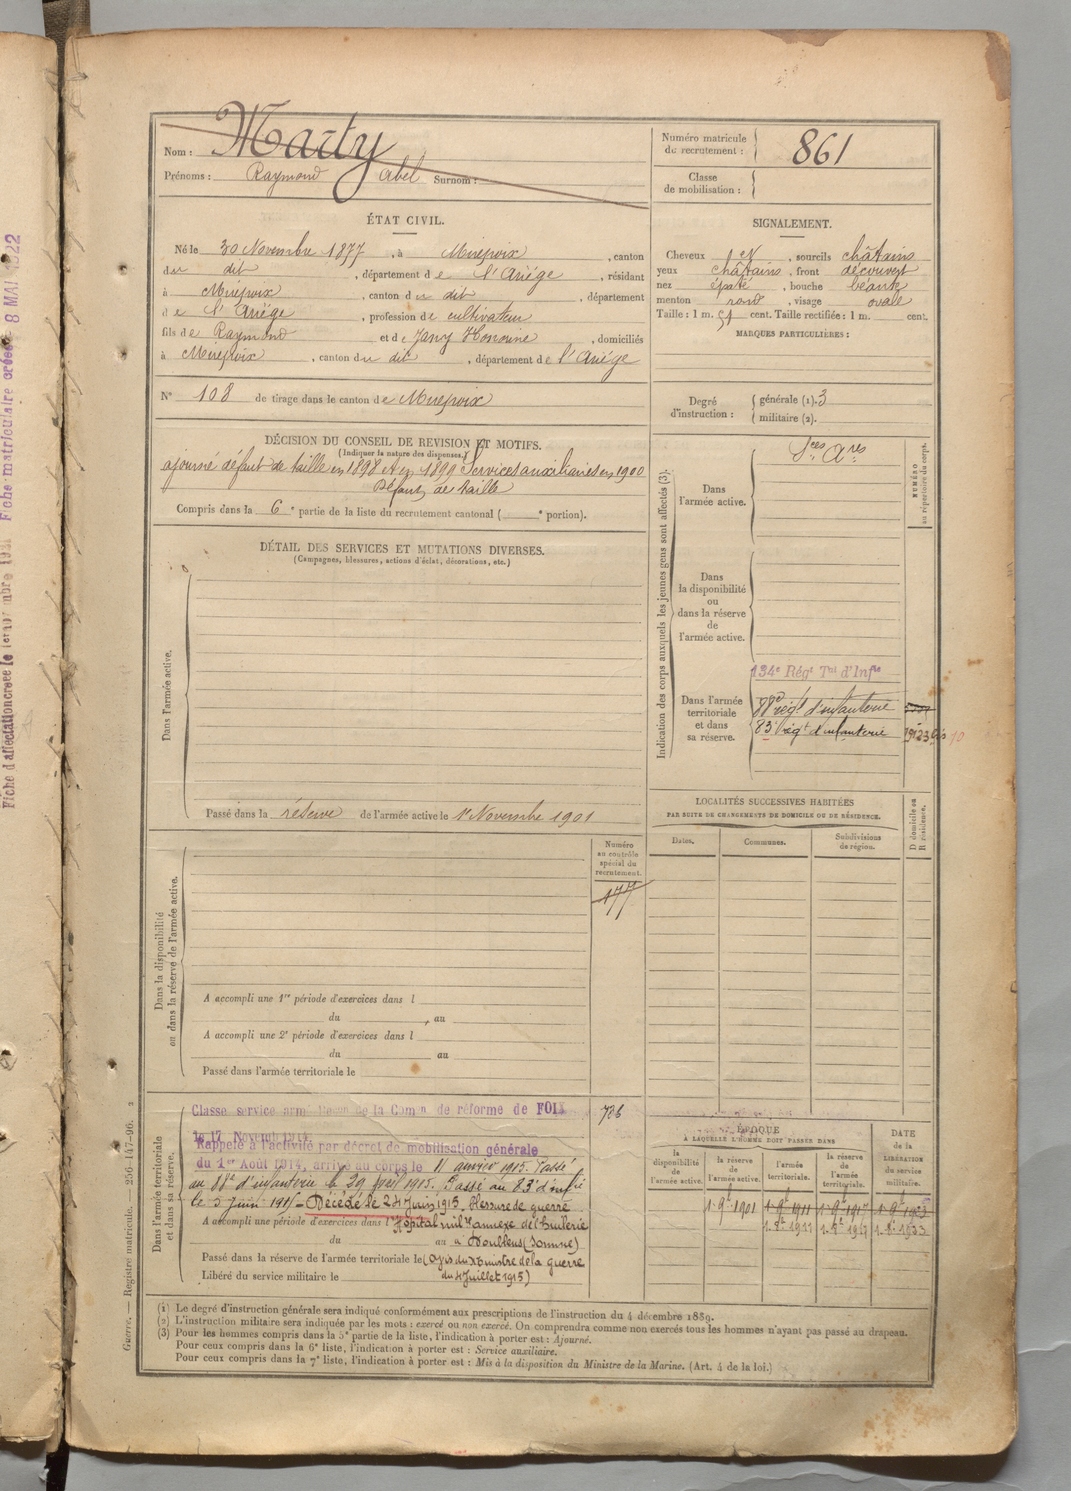 Fiche d'affectation créée le
Fiche matriculaire créée 8 MAI 1922
Nom : Marty
Prénoms : Raymond Abel Surnom :
Numéro matricule
du recrutement : 861
Classe
de mobilisation :
ÉTAT CIVIL.
Né le 30 Novembre 1877, à Mirepoix, canton
du dit, département de l'Ariége, résidant
à Mirepoix, canton du dit, département
de l'Ariége, profession de cultivateur
fils de Raymond et de Jany Honorine, domiciliés
à Mirepoix, canton du dit, département de l'Ariége
N° 108 de tirage dans le canton de Mirepoix
SIGNALEMENT.
Cheveux, sourcils châtains
yeux châtains, front découvert
nez épaté, bouche béante
menton rond, visage ovale
Taille : 1 m. 51 cent. Taille rectifiée : 1 m. cent.
MARQUES PARTICULIÈRES :
Degré
d'instruction :
générale (1). 3
militaire (2).
DÉCISION DU CONSEIL DE REVISION ET MOTIFS.
(Indiquer la nature des dispenses.)
ajourné défaut de taille en 1898 et en 1899 Services auxiliaires en 1900
Défaut de taille
Compris dans la 6e partie de la liste du recrutement cantonal ( e portion).
DÉTAIL DES SERVICES ET MUTATIONS DIVERSES.
(Campagnes, blessures, actions d'éclat, décorations, etc.)
Dans l'armée active.
Passé dans la réserve de l'armée active le 1er Novembre 1901
Indication des corps auxquels les jeunes gens sont affectés (3).
NUMÉRO
au répertoire du corps.
Dans
l'armée active.
Sces Ares
Dans
la disponibilité
ou
dans la réserve
de
l'armée active.
Dans l'armée
territoriale
et dans
sa réserve.
134e Régt Tal d'Infie
88e régt d'infanterie
83e régt d'infanterie
LOCALITÉS SUCCESSIVES HABITÉES
PAR SUITE DE CHANGEMENTS DE DOMICILE OU DE RÉSIDENCE.
Dates.
Communes.
Subdivisions
de région.
D domicile ou
R résidence.
Dans la disponibilité
ou dans la réserve de l'armée active.
Numéro
au contrôle
spécial du
recrutement.
A accompli une 1re période d'exercices dans l
du, au
A accompli une 2e période d'exercices dans l
du au
Passé dans l'armée territoriale le
Dans l'armée territoriale
et dans sa réserve.
Classé service armé de la Comon de réforme de FOIX
le 17
Rappelé à l'activité par décret de mobilisation générale
du 1er Août 1914, arrivé au corps le 11 janvier 1915. Passé
au 88e d'infanterie le 29 avril 1915. Passé au 83e d'infie
le 5 juin 1915 - Décédé le 24 Juin 1915, Blessure de guerre
A accompli une période d'exercices dans l Hôpital mil annexe de
du au à Doullens (Somme)
Passé dans la réserve de l'armée territoriale le (avis du Ministre de la guerre
Libéré du service militaire le du 4 Juillet 1915)
ÉPOQUE
À LAQUELLE L'HOMME DOIT PASSER DANS
la
disponibilité
de
l'armée active.
la réserve
de
l'armée active.
l'armée
territoriale.
la réserve
de
l'armée
territoriale.
DATE
de la
LIBÉRATION
du service
militaire.
(1) Le degré d'instruction générale sera indiqué conformément aux prescriptions de l'instruction du 4 décembre 1889.
(2) L'instruction militaire sera indiquée par les mots : exercé ou non exercé. On comprendra comme non exercés tous les hommes n'ayant pas passé au drapeau.
(3) Pour les hommes compris dans la 5e partie de la liste, l'indication à porter est : Ajourné.
Pour ceux compris dans la 6e liste, l'indication à porter est : Service auxiliaire.
Pour ceux compris dans la 7e liste, l'indication à porter est : Mis à la disposition du Ministre de la Marine. (Art. 4 de la loi.)
Guerre. — Registre matricule. — 256-147-96.